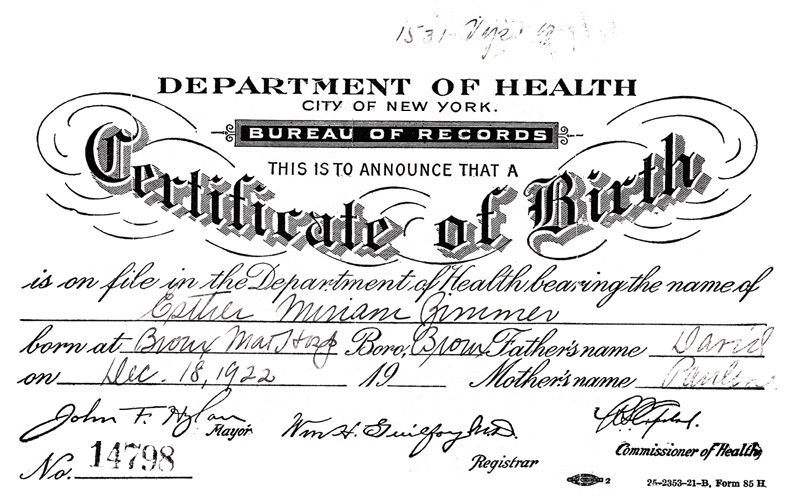 1531
DEPARTMENT OF HEALTH
CITY OF NEW YORK.
BUREAU OF RECORDS
THIS IS TO ANNOUNCE THAT A
Certificate of Birth
is on file in the Department of Health bearing the name of
Esther Miriam Zimmer
born at Bronx Mat Hosp Boro, Bronx Father's name David
on Dec. 18, 1922 19 Mother's name Paulin
John F. Hylan Mayor Wm H. Guilfoy M.D.
Registrar Commissioner of Health,
No. 14798
2 25-2353-21-B, Form 85 H